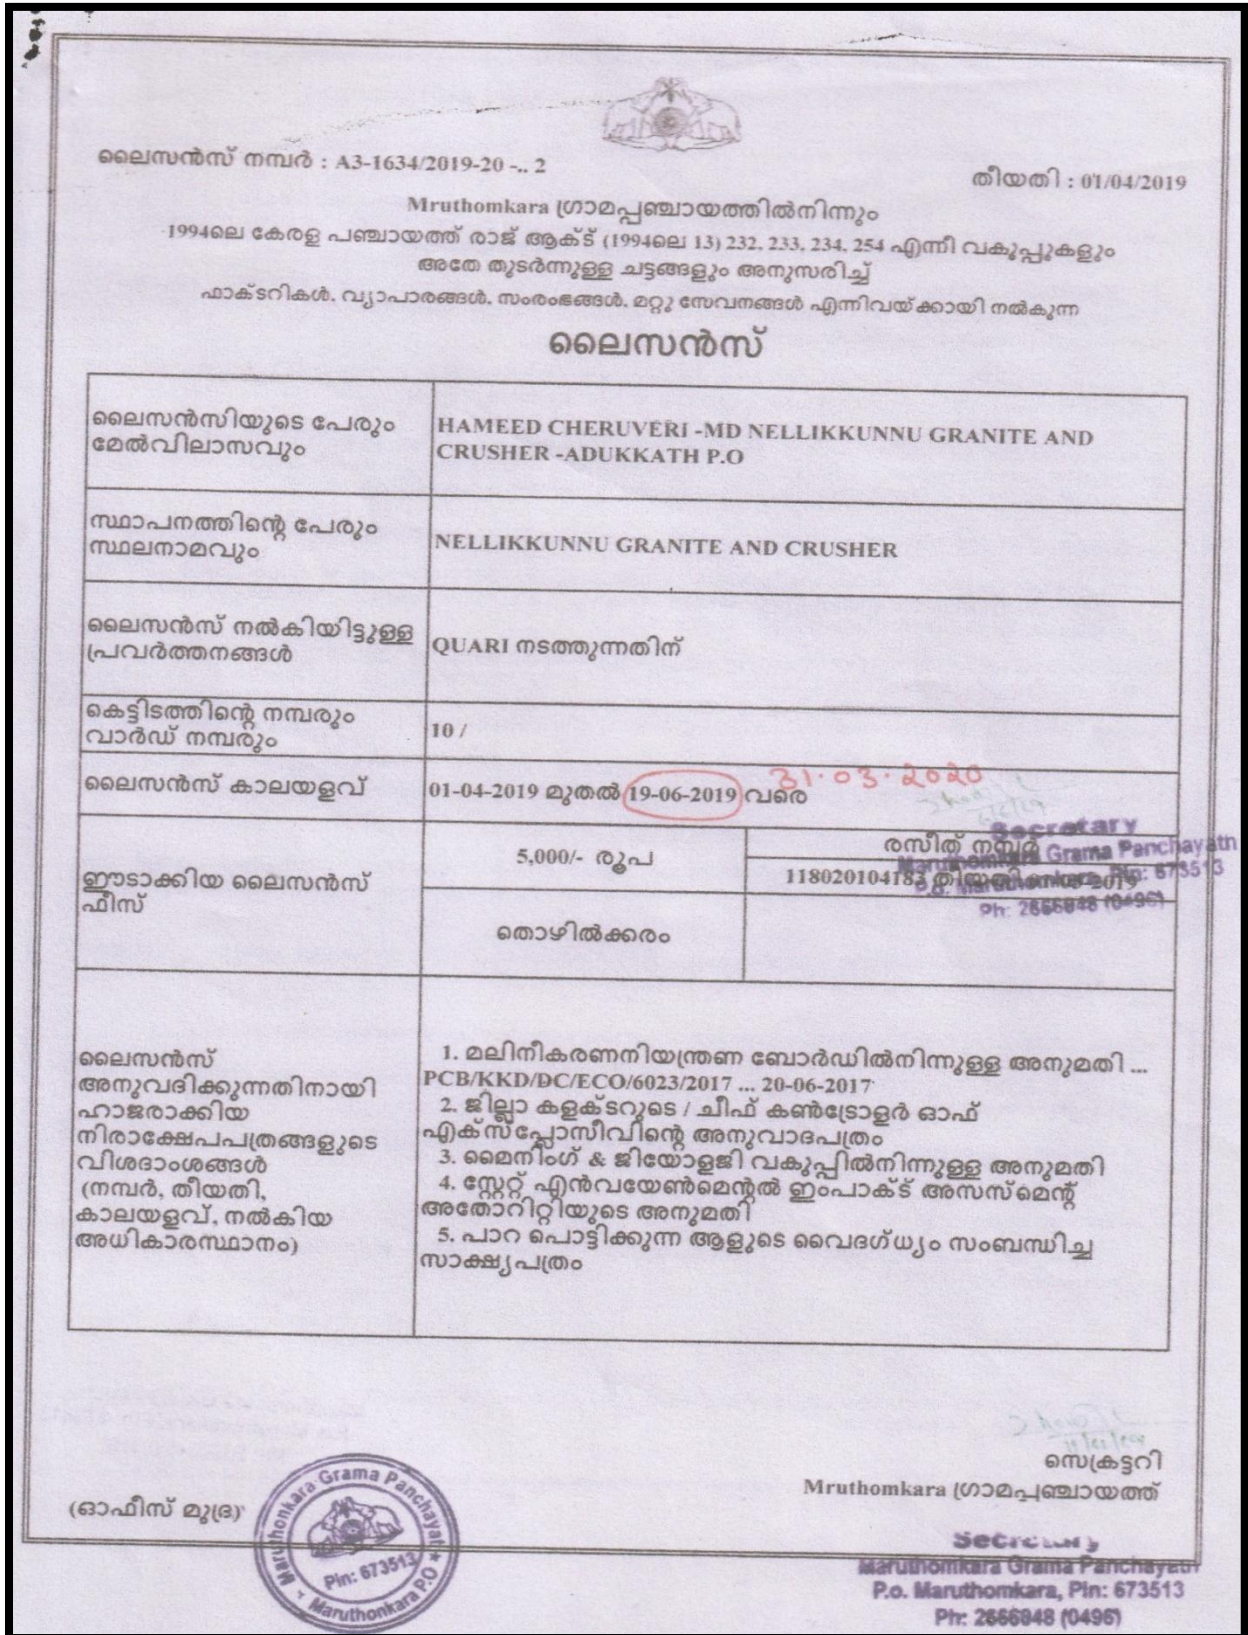 ലൈസൻസ് നമ്പർ : A3-1634/2019-20 -.. 2
തീയതി : 01/04/2019
Mruthomkara ഗ്രാമപ്പഞ്ചായത്തിൽനിന്നും
1994ലെ കേരള പഞ്ചായത്ത് രാജ് ആക്ട് (1994ലെ 13) 232, 233, 234, 254 എന്നീ വകുപ്പുകളും
അതേ തുടർന്നുള്ള ചട്ടങ്ങളും അനുസരിച്ച്
ഫാക്ടറികൾ, വ്യാപാരങ്ങൾ, സംരംഭങ്ങൾ, മറ്റു സേവനങ്ങൾ എന്നിവയ്ക്കായി നൽകുന്ന
ലൈസൻസ്
ലൈസൻസിയുടെ പേരും
മേൽവിലാസവും
HAMEED CHERUVERI -MD NELLIKKUNNU GRANITE AND
CRUSHER -ADUKKATH P.O
സ്ഥാപനത്തിന്റെ പേരും
സ്ഥലനാമവും
NELLIKKUNNU GRANITE AND CRUSHER
ലൈസൻസ് നൽകിയിട്ടുള്ള
പ്രവർത്തനങ്ങൾ
QUARI നടത്തുന്നതിന്
കെട്ടിടത്തിന്റെ നമ്പരും
വാർഡ് നമ്പരും
10 /
ലൈസൻസ് കാലയളവ്
31.03.2020
01-04-2019 മുതൽ 19-06-2019 വരെ
Secretary
Maruthomkara Grama Panchayath
P.o. Maruthomkara, Pin: 673513
Ph: 2666848 (0496)
ഈടാക്കിയ ലൈസൻസ്
ഫീസ്
5,000/- രൂപ
രസീത് നമ്പർ
118020104183 തിയതി
തൊഴിൽക്കരം
ലൈസൻസ്
അനുവദിക്കുന്നതിനായി
ഹാജരാക്കിയ
നിരാക്ഷേപപത്രങ്ങളുടെ
വിശദാംശങ്ങൾ
(നമ്പർ, തീയതി,
കാലയളവ്, നൽകിയ
അധികാരസ്ഥാനം)
1. മലിനീകരണനിയന്ത്രണ ബോർഡിൽനിന്നുള്ള അനുമതി ...
PCB/KKD/DC/ECO/6023/2017 ... 20-06-2017
2. ജില്ലാ കളക്ടറുടെ / ചീഫ് കൺട്രോളർ ഓഫ്
എക്സ്പ്ലോസീവിന്റെ അനുവാദപത്രം
3. മൈനിംഗ് & ജിയോളജി വകുപ്പിൽനിന്നുള്ള അനുമതി
4. സ്റ്റേറ്റ് എൻവയേൺമെന്റൽ ഇംപാക്ട് അസസ്മെന്റ്
അതോറിറ്റിയുടെ അനുമതി
5. പാറ പൊട്ടിക്കുന്ന ആളുടെ വൈദഗ്ധ്യം സംബന്ധിച്ച
സാക്ഷ്യപത്രം
സെക്രട്ടറി
Mruthomkara ഗ്രാമപ്പഞ്ചായത്ത്
(ഓഫീസ് മുദ്ര)
Maruthonkara Grama Panchayat
Pin: 673513
Maruthonkara P.O
Secretary
Maruthomkara Grama Panchayath
P.o. Maruthomkara, Pin: 673513
Ph: 2666848 (0496)